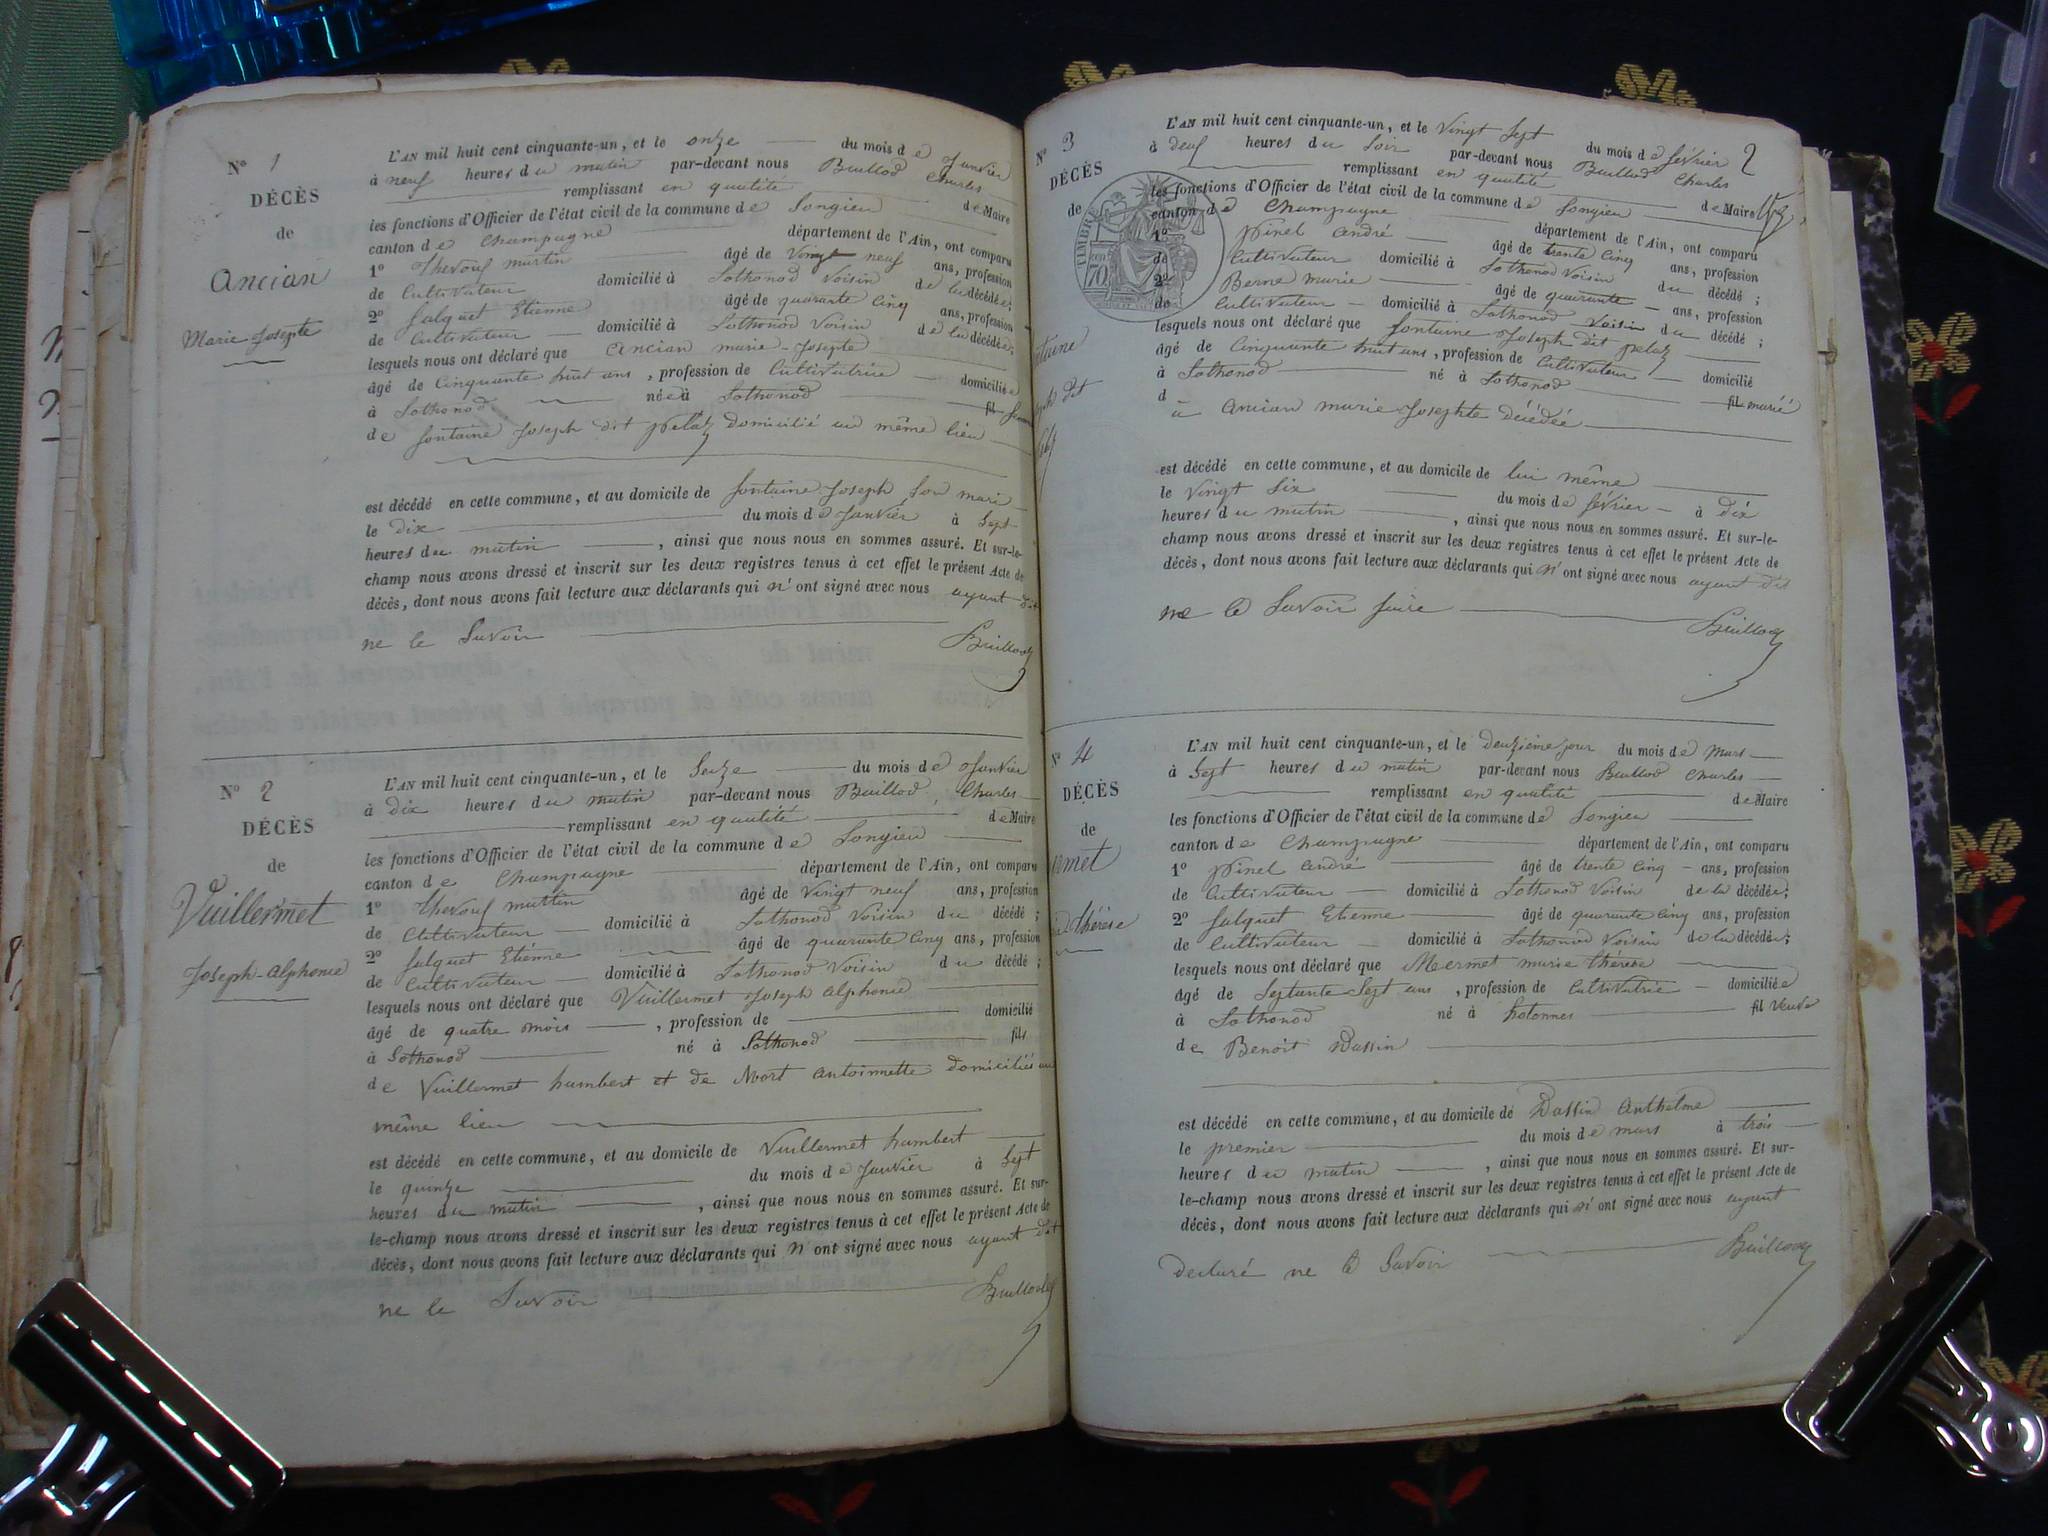 N° 1
DÉCÈS
de
Ancian
Marie Josephte
L'AN mil huit cent cinquante-un, et le onze du mois de Janvier
à neuf heures du matin par-devant nous Buillod Charles
remplissant en qualité de Maire
les fonctions d'Officier de l'état civil de la commune de Songieu
canton de Champagne département de l'Ain, ont comparu
1° Thevouf martin âgé de Vingt neuf ans, profession
de Cultivateur domicilié à Sothonod Voisin de la décédée;
2° Jalquet Etienne âgé de quarante Cinq ans, profession
de Cultivateur domicilié à Sothonod Voisin de la décédée;
lesquels nous ont déclaré que Ancian marie-Josepte
âgé de Cinquante huit ans, profession de Cultivatrice domiciliée
à Sothonod née à Sothonod fil
de fontaine Joseph dit pelaz domicilié au même lieu
est décédé en cette commune, et au domicile de fontaine Joseph Son mari
le dix du mois de Janvier à Sept
heures du matin, ainsi que nous nous en sommes assuré. Et sur-le-
champ nous avons dressé et inscrit sur les deux registres tenus à cet effet le présent Acte de
décès, dont nous avons fait lecture aux déclarants qui n'ont signé avec nous ayant dit
ne le Savoir Buillod
N° 2
DÉCÈS
de
Vuillermet
Joseph-Alphonse
L'AN mil huit cent cinquante-un, et le Seize du mois de Janvier
à dix heures du matin par-devant nous Buillod, Charles
remplissant en qualité de Maire
les fonctions d'Officier de l'état civil de la commune de Songieu
canton de Champagne département de l'Ain, ont comparu
1° Thevouf martin âgé de Vingt neuf ans, profession
de Cultivateur domicilié à Sothonod Voisin du décédé;
2° Jalquet Etienne âgé de quarante Cinq ans, profession
de Cultivateur domicilié à Sothonod Voisin du décédé;
lesquels nous ont déclaré que Vuillermet Joseph Alphonse
âgé de quatre mois, profession de domicilié
à Sothonod né à Sothonod fils
de Vuillermet humbert et de Mort Antoinette domiciliés au
même lieu
est décédé en cette commune, et au domicile de Vuillermet humbert
le quinze du mois de Janvier à Sept
heures du matin, ainsi que nous nous en sommes assuré. Et sur-
le-champ nous avons dressé et inscrit sur les deux registres tenus à cet effet le présent Acte de
décès, dont nous avons fait lecture aux déclarants qui n'ont signé avec nous ayant dit
ne le Savoir Buillod
2
N° 3
DÉCÈS
de
TIMBRE
70
L'AN mil huit cent cinquante-un, et le Vingt Sept du mois de février
à deux heures du Soir par-devant nous Buillod Charles
remplissant en qualité de Maire
les fonctions d'Officier de l'état civil de la commune de Songieu
canton de Champagne département de l'Ain, ont comparu
1° pinel André âgé de trente Cinq ans, profession
de Cultivateur domicilié à Sothonod Voisin du décédé;
2° Berne marie âgé de quarante ans, profession
de Cultivateur domicilié à Sothonod Voisin du décédé;
lesquels nous ont déclaré que fontaine Joseph dit pelaz
âgé de Cinquante huit ans, profession de Cultivateur domicilié
à Sothonod né à Sothonod fil marié
d à Ancian marie Josephte décédée
est décédé en cette commune, et au domicile de lui même
le Vingt Six du mois de février à dix
heures du matin, ainsi que nous nous en sommes assuré. Et sur-le-
champ nous avons dressé et inscrit sur les deux registres tenus à cet effet le présent Acte de
décès, dont nous avons fait lecture aux déclarants qui n'ont signé avec nous ayant dit
ne le Savoir faire Buillod
N° 4
DÉCÈS
de
ermet
Thérèse
L'AN mil huit cent cinquante-un, et le deuxième jour du mois de Mars
à Sept heures du matin par-devant nous Buillod Charles
remplissant en qualité de Maire
les fonctions d'Officier de l'état civil de la commune de Songieu
canton de Champagne département de l'Ain, ont comparu
1° pinel André âgé de trente Cinq ans, profession
de Cultivateur domicilié à Sothonod Voisin de la décédée;
2° Jalquet Etienne âgé de quarante Cinq ans, profession
de Cultivateur domicilié à Sothonod Voisin de la décédée;
lesquels nous ont déclaré que Mermet marie thérèse
âgé de Septante Sept ans, profession de Cultivatrie domiciliée
à Sothonod né à hotonnes fil Veuve
de Benoit Dassin
est décédé en cette commune, et au domicile de Dassin Anthelme
le premier du mois de mars à trois
heures du matin, ainsi que nous nous en sommes assuré. Et sur-
le-champ nous avons dressé et inscrit sur les deux registres tenus à cet effet le présent Acte de
décès, dont nous avons fait lecture aux déclarants qui n'ont signé avec nous ayant
declaré ne le Savoir Buillod